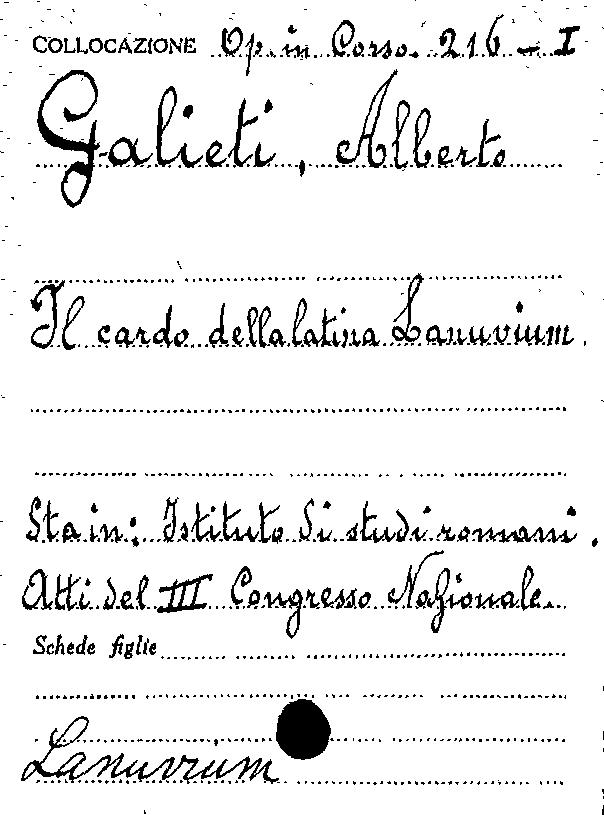 COLLOCAZIONE Op. in Corso. 216 - I
Galieti, Alberto
Il cardo della latina Lanuvium.
Sta in: Istituto di studi romani.
Atti del III Congresso Nazionale.
Schede figlie
Lanuvium